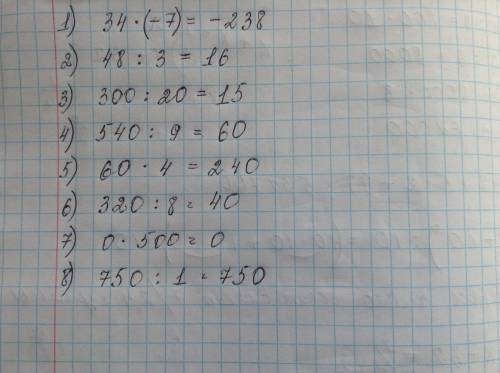 1) 34 · (-7) = -238
2) 48 : 3 = 16
3) 300 : 20 = 15
4) 540 : 9 = 60
5) 60 · 4 = 240
6) 320 : 8 = 40
7) 0 · 500 = 0
8) 750 : 1 = 750